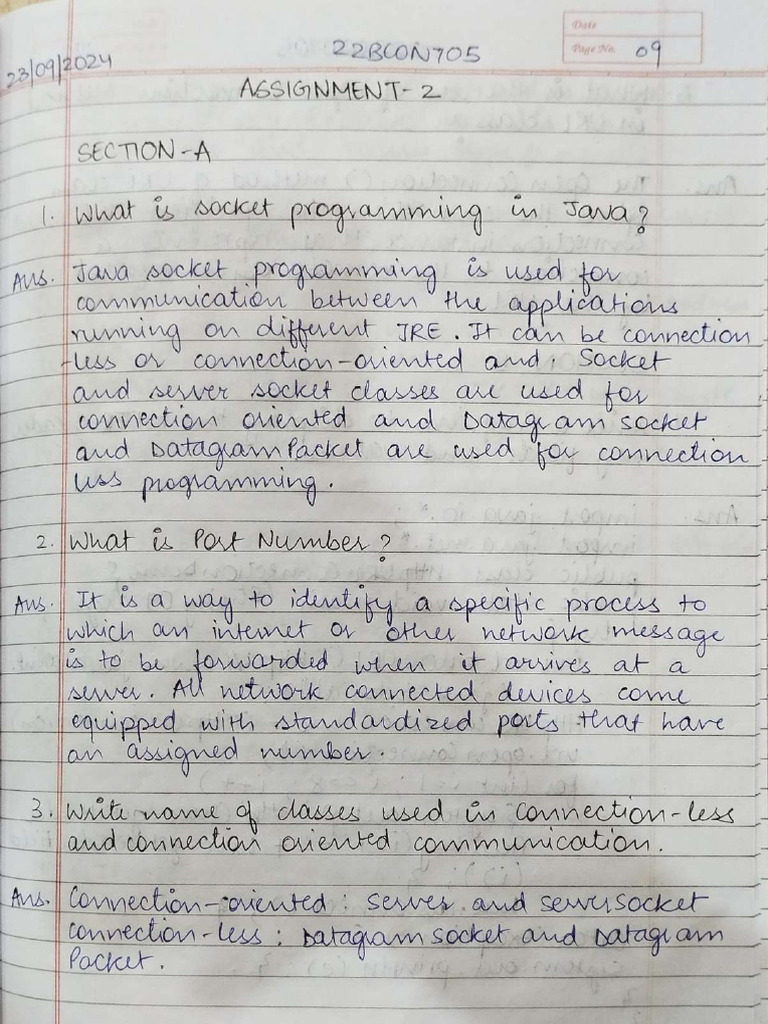 Date
Page No. 09
23/09/2024
22BCON705
ASSIGNMENT-2
SECTION-A
1. What is socket programming in Java?
Ans. Java socket programming is used for
communication between the applications
running on different JRE. It can be connection
-less or connection-oriented and, Socket
and server socket classes are used for
connection oriented and Datagram socket
and DatagramPacket are used for connection
less programming.
2. What is Port Number?
Ans. It is a way to identify a specific process to
which an internet or other network message
is to be forwarded when it arrives at a
server. All network connected devices come
equipped with standardized ports that have
an assigned number.
3. Write name of classes used in connection-less
and connection oriented communication.
Ans. Connection-oriented: Server and serversocket
connection-less: Datagram socket and Datagram
Packet.